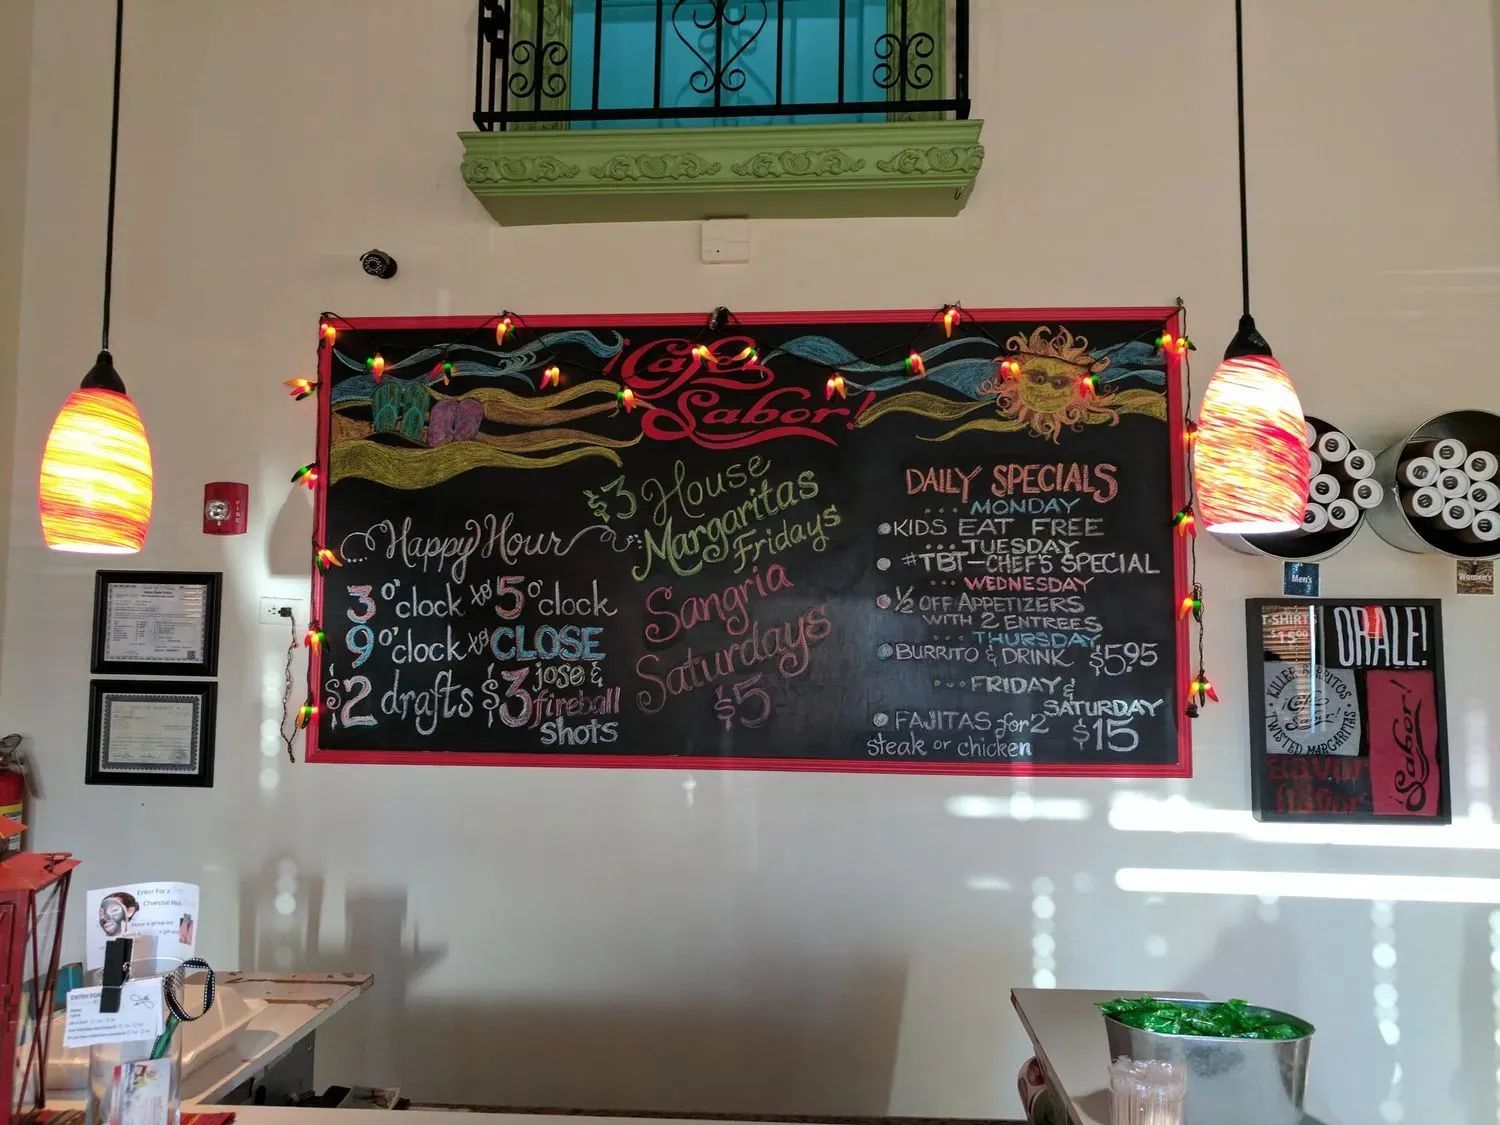 ¡Cafe
Sabor!
$3 House
Margaritas
Fridays
Sangria
Saturdays
$5
Happy Hour
3 o'clock to 5 o'clock
9 o'clock to CLOSE
$2 drafts $3 jose &
fireball
shots
DAILY SPECIALS
... MONDAY
KIDS EAT FREE
... TUESDAY
#TBT-CHEF'S SPECIAL
... WEDNESDAY
1/2 OFF APPETIZERS
WITH 2 ENTREES
... THURSDAY
BURRITO & DRINK $5.95
... FRIDAY &
SATURDAY
FAJITAS for 2
steak or chicken $15
FIRE
Men's
Women's
T-SHIRTS
$15.00
ORALE!
KILLER BURRITOS
TWISTED MARGARITAS
¡Sabor!
Enter For a
Charcoal
ENTRY FOR